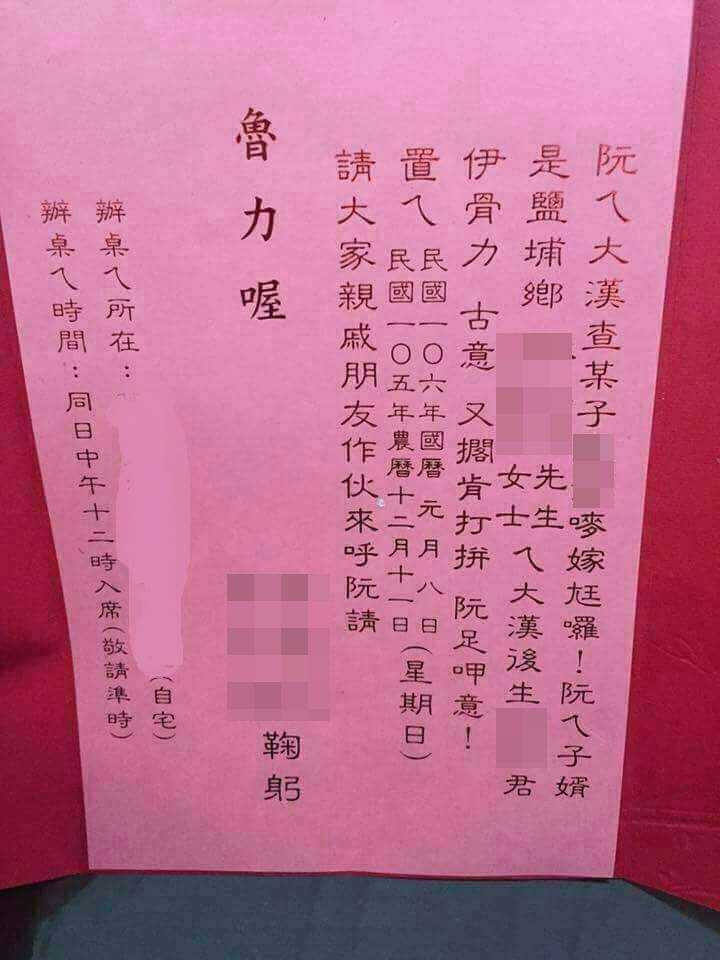 阮ㄟ大漢查某子嘜嫁尪囉！阮ㄟ子婿
是鹽埔鄉 先生女士ㄟ大漢後生 君
伊骨力 古意 又擱肯打拼 阮足呷意！
置ㄟ 民國一〇六年國曆 元月八日 民國一〇五年農曆十二月十一日(星期日)
請大家親戚朋友作伙來呼阮請
魯力喔
鞠躬
辦桌ㄟ所在：(自宅)
辦桌ㄟ時間：同日中午十二時入席(敬請準時)